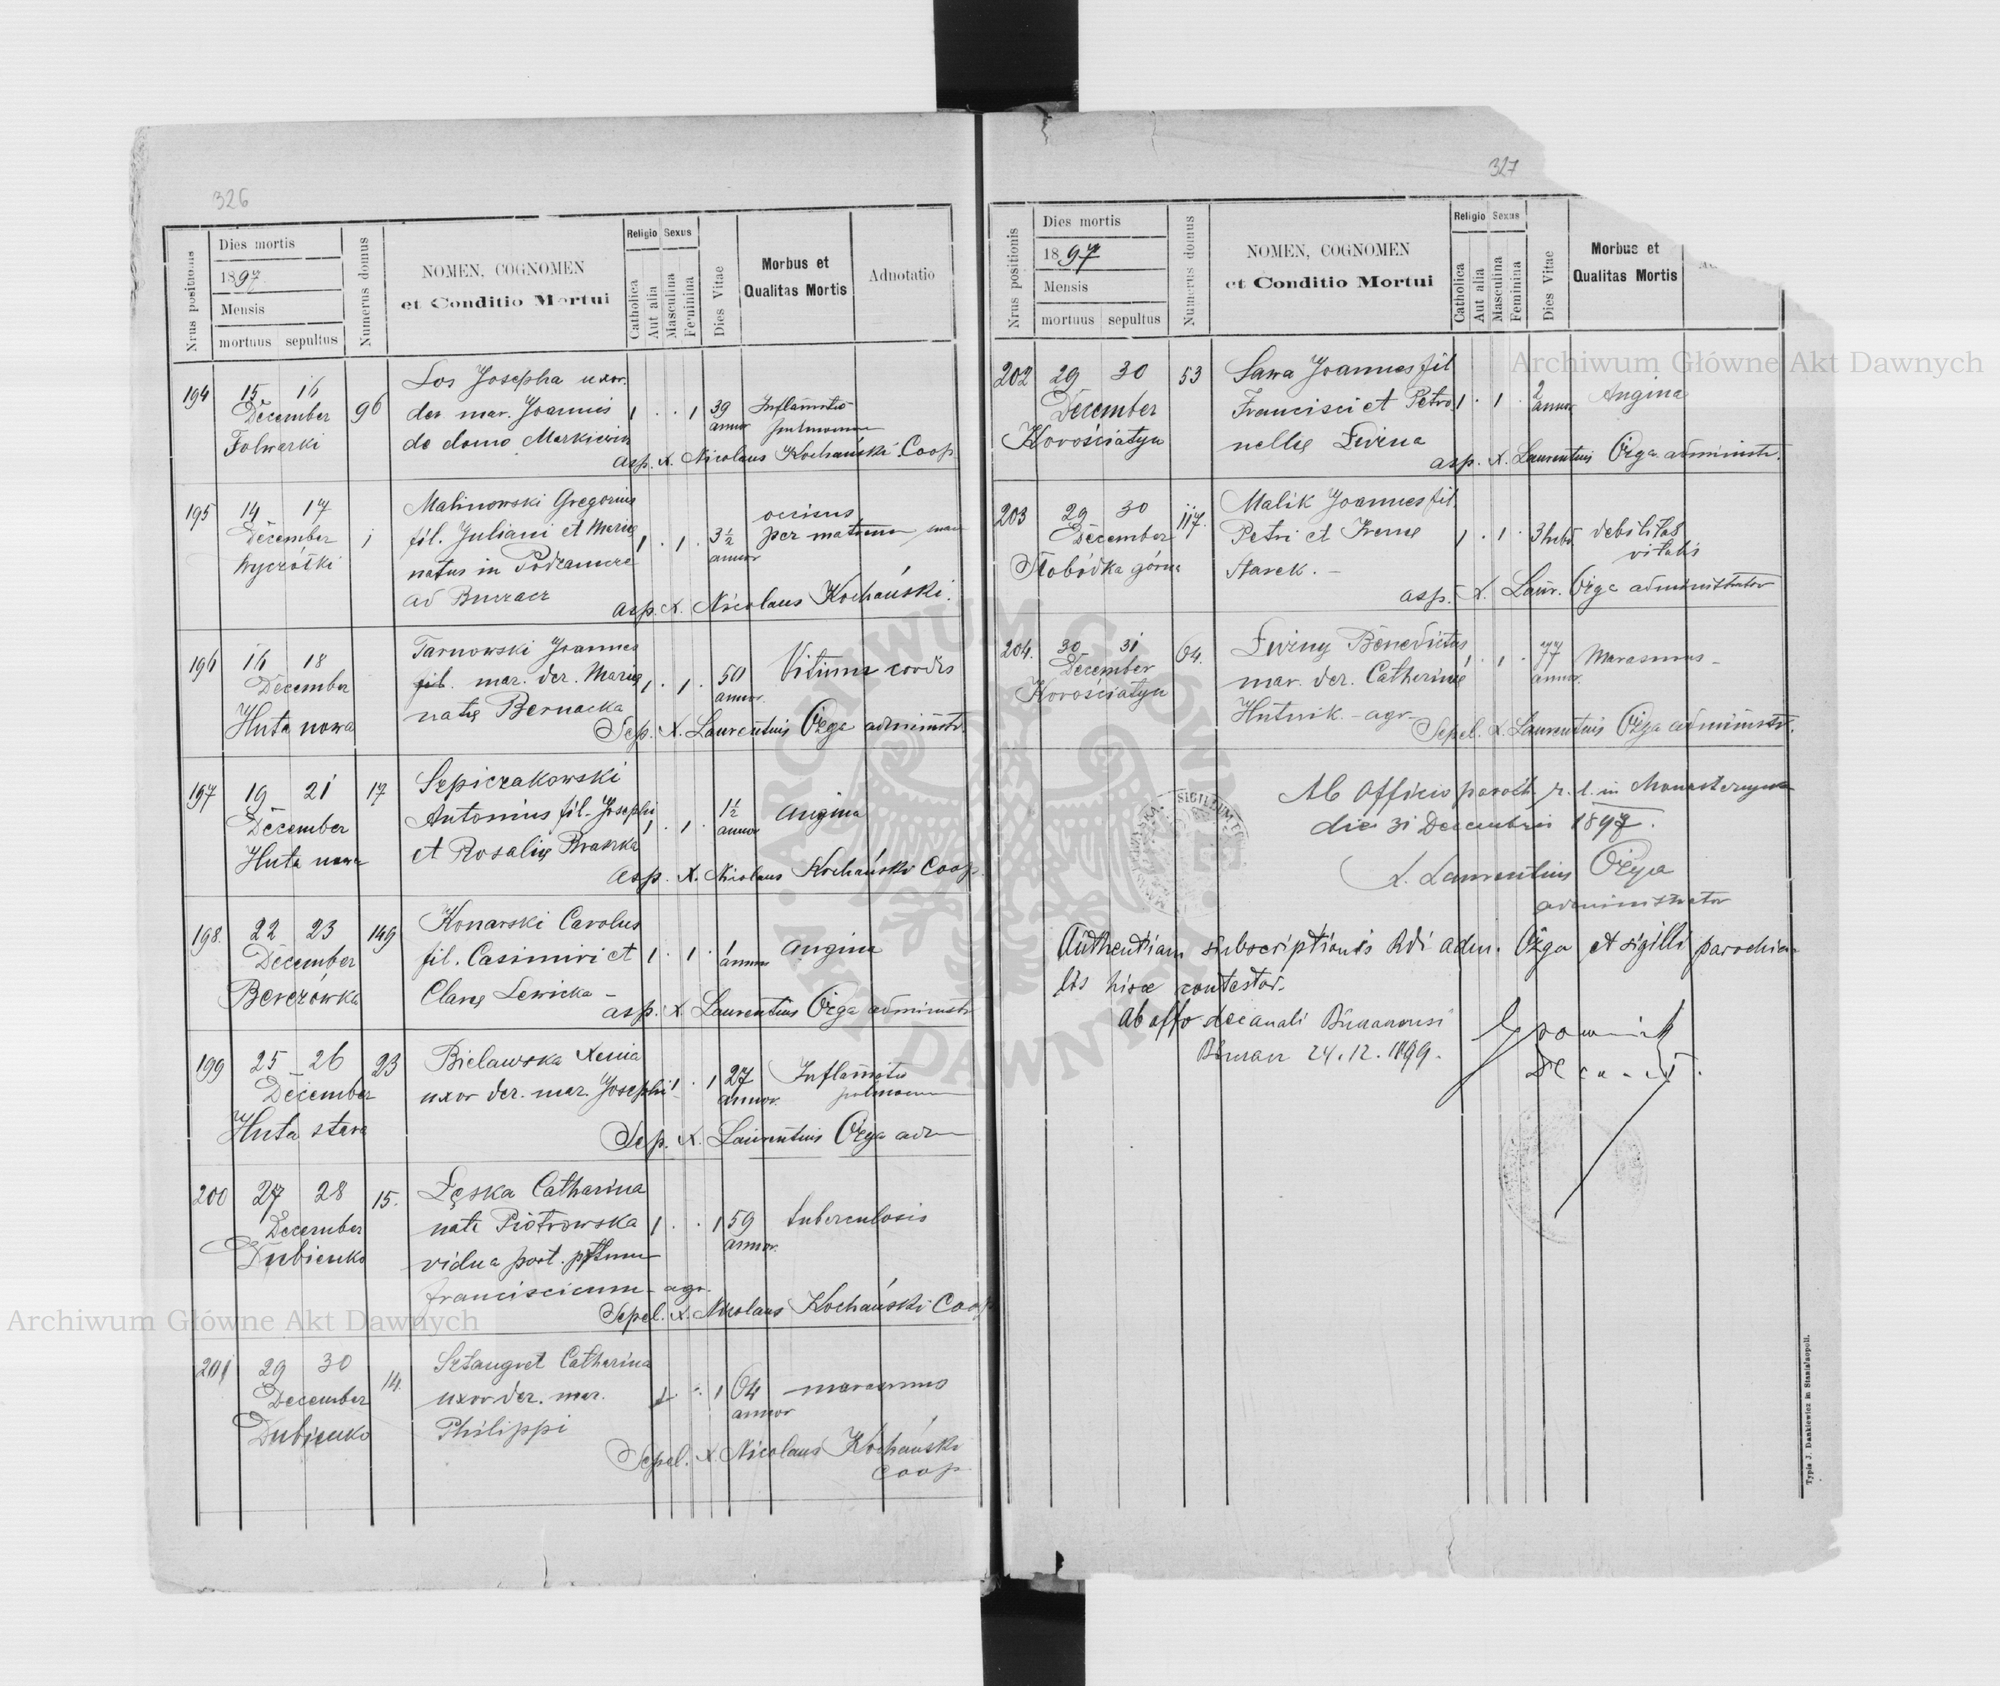 326
Nrus positionis
Dies mortis
1897
Mensis
mortuus sepultus
Numerus domus
NOMEN, COGNOMEN
et Conditio Mortui
Religio Sexus
Catholica
Aut alia
Masculina
Feminina
Dies Vitae
Morbus et
Qualitas Mortis
Adnotatio
194 15 16 96 Los Josepha uxor.
December der. mar. Joannis 1 . . 1 39 Inflamatio
Folwarki de domo Markiewicz annor pulmonum
asp. X. Nicolaus Kochański Coop.
195 14 17 1 Malinowski Gregorius
December fil. Juliani et Marię 1 . 1 . 3½ occisus
Wyczółki natus in Podzamcze annor per matrem
ad Buczacz
asp. X. Nicolaus Kochański.
196 16 18 Tarnowski Joannes
December fil. mar. der. Marię 1 . 1 . 50 Vitium cordis
Huta nowa natę Bernacka annor.
Sep. X. Laurentius Ożga administr.
197 19 21 17 Szpiczakowski
December Antonius fil. Josephi 1 . 1 . 1½ Angina
Huta nowa et Rosalię Braszka annor
asp. X. Nicolaus Kochański Coop.
198. 22 23 149 Konarski Carolus
December fil. Casimiri et 1 . 1 . 1 Angina
Berezówka Clarę Lewicka - annum
asp. X. Laurentius Ożga administr
199 25 26 23 Bielawska Xenia
December uxor der. mar. Josephi 1 . . 1 27 Inflamatio
Huta stara annor. pulmonum
Sep. X. Laurentius Ożga adm
200 27 28 15. Łęska Catharina
December nata Piotrowska 1 . . 1 59 tuberculosis
Dubienko vidua post annor.
Franciscum - agr.
Sepel. X. Nicolaus Kochański Coop
201 29 30 14. Sztangret Catharina
December uxor der. mar. 1 64 marasmus
Dubienko Philippi annor
Sepel. X. Nicolaus Kochański
Coop
327
Nrus positionis
Dies mortis
1897
Mensis
mortuus sepultus
Numerus domus
NOMEN, COGNOMEN
et Conditio Mortui
Religio Sexus
Catholica
Aut alia
Masculina
Feminina
Dies Vitae
Morbus et
Qualitas Mortis
202 29 30 53 Sawa Joannes fil
December Francisci et Petro 1 . 1 . 2 Angina
Korościatyn nellę Liwina annor
asp. X. Laurentius Ożga administr.
203 29 30 117. Malik Joannes fil.
December Petri et Irenę 1 . 1 . 3 hebd. debilitas
Słobódka górna Stasek. - vitalis
asp. X. Laur. Ożga administrator
204. 30 31 64. Liwiny Benedictus
December mar. der. Catherinę 1 . 1 . 77 Marasmus -
Korościatyn Hutnik. - agr - annor.
Sepel. X. Laurentius Ożga administr.
Ab Officio paroch. r. l. in Monasterzyska
die 31 Decembris 1897.
X. Laurentius Ożga
administrator
Authentiam subscriptionis Rdi adm. Ożga et sigilli parochia
lis hisce contestor.
Ab offo decanali Buczacensi
Buczacz 24.12.1899.
Gromnicki
Decan
SIGILLUM
Typis J. Dankiewicz in Stanislaopoli.
Archiwum Główne Akt Dawnych
Archiwum Główne Akt Dawnych
ARCHIWUM GŁÓWNE
AKT DAWNYCH